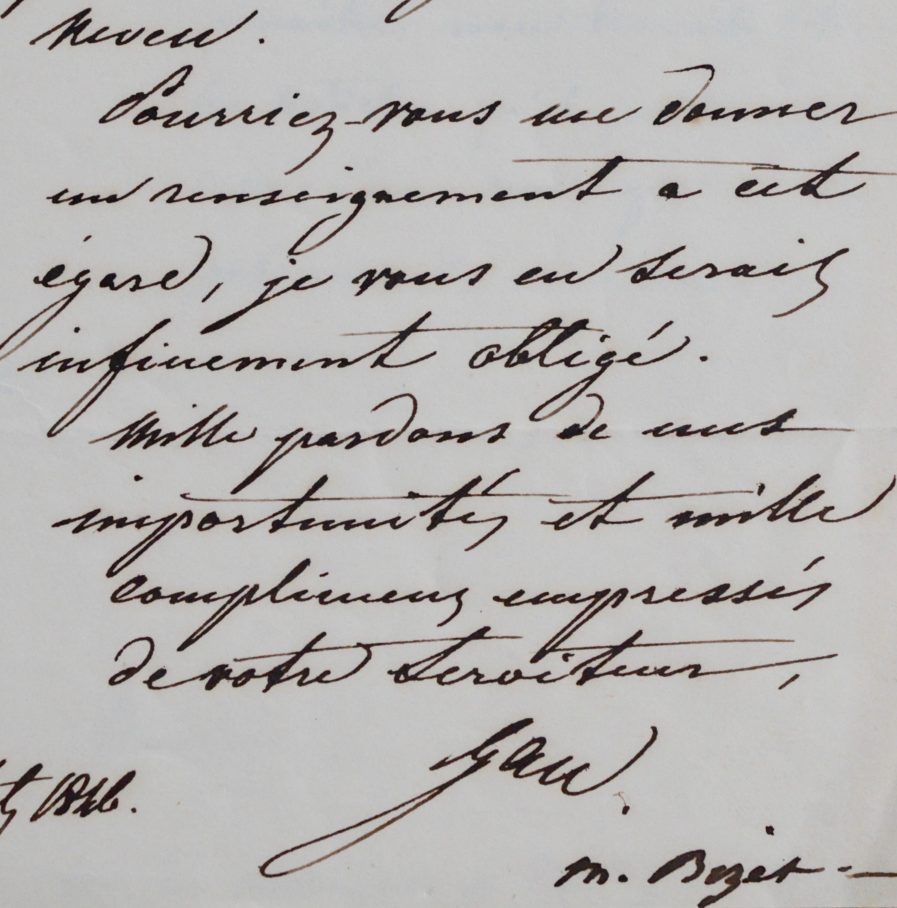 neveu.
Pourriez-vous me donner
un renseignement a cet
égard, je vous en serais
infiniment obligé.
Mille pardons de mes
importunités et mille
complimens empressés
de votre serviteur,
Gau.
1846.
M. Bizet